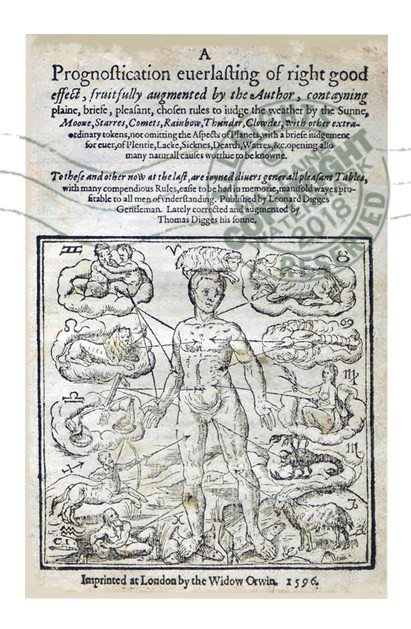 A
Prognoſtication euerlaſting of right good
effect, fruitfully augmented by the Author, contayning
plaine, briefe, pleaſant, choſen rules to iudge the weather by the Sunne,
Moone, Starres, Comets, Rainbow, Thunder, Clowdes, with other extra-
ordinary tokens, not omitting the Aſpects of Planets, with a briefe iudgement
for euer, of Plentie, Lacke, Sicknes, Dearth, Warres, &c. opening alſo
many naturall cauſes worthie to be knowne.
To theſe and other now at the laſt, are ioyned diuers generall pleaſant Tables,
with many compendious Rules, eaſie to be had in memorie, manifold wayes pro-
fitable to all men of vnderſtanding. Publiſhed by Leonard Digges
Gentleman. Lately corrected and augmented by
Thomas Digges his ſonne.
2018
RESERVED
Imprinted at London by the Widow Orwin. 1596.